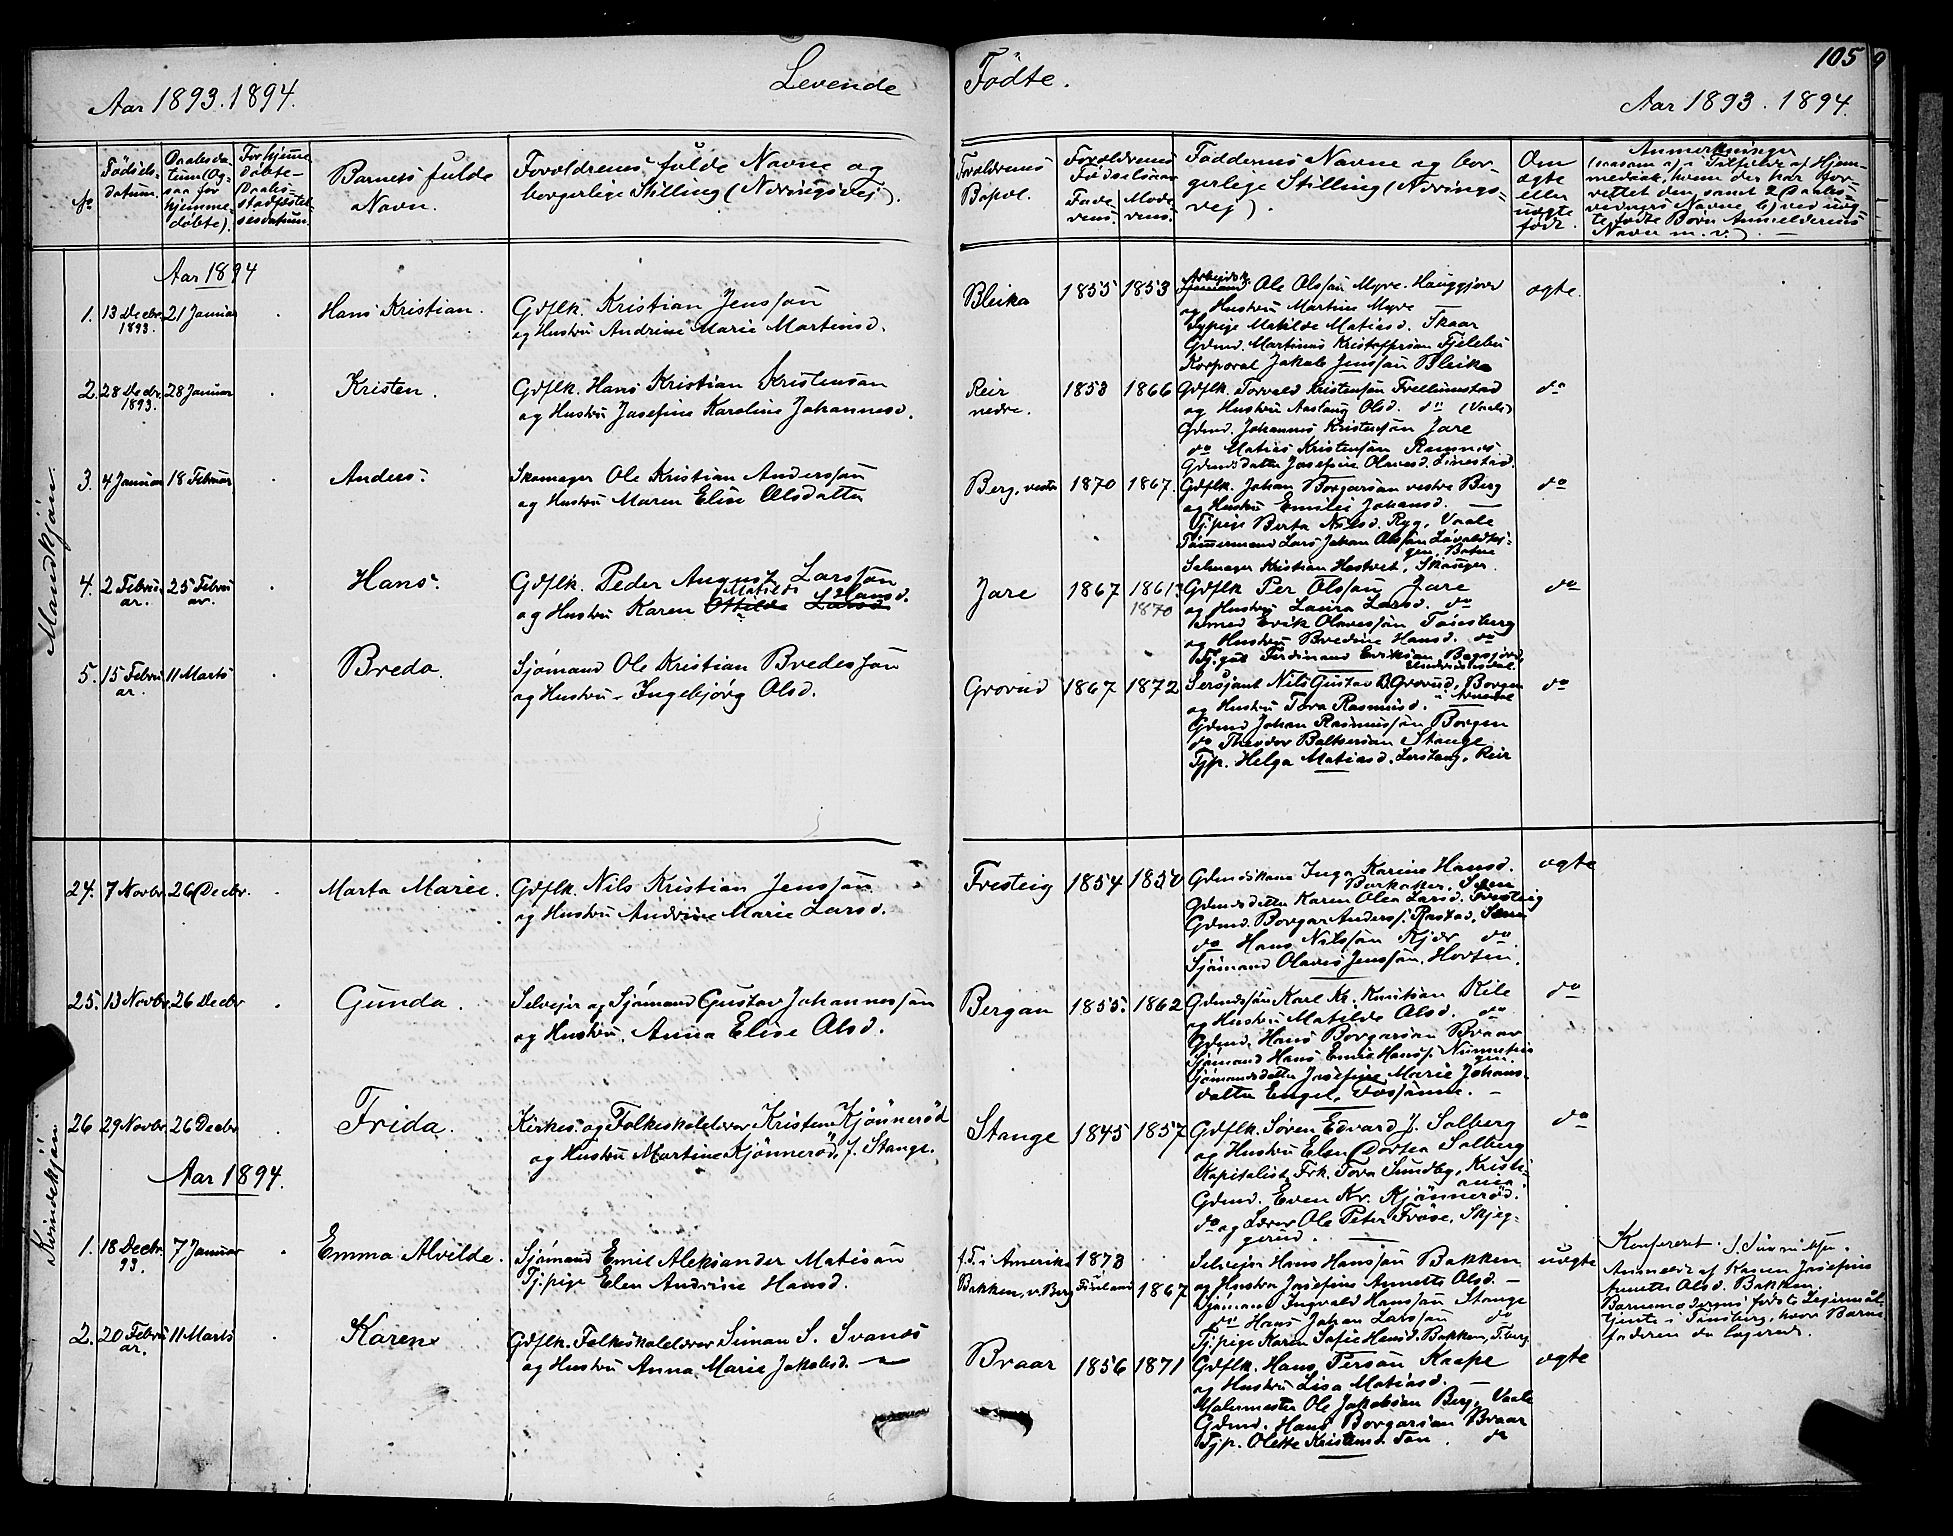 105
9
Aar 1893.1894.
Levende
Fødte.
Aar 1893.1894.
No
Fødsels-
datum.
Daabsda-
tum (Og-
saa for
hjemme-
døbte).
For hjemme
døbte
Daabs-
stadfæstel-
sesdatum.
Barnets fulde
Navn.
Forældrenes fulde Navne og
borgerlige Stilling (Næringsvej).
Forældrenes
Bopæl.
Forældrenes
Fødselsaar
Fade-
rens.
Mode-
rens.
Faddernes Navne og bor-
gerlige Stilling (Nærings-
vej).
Om
ægte
eller
uægte
født.
Anmerkninger
(saasom a) i Tilfælde af Hjem-
medaab, hvem der har for-
rettet den, samt 2 Daabs-
vidners Navne b) ved uæg-
te fødte Børn Anmelderens
Navn m. v.)
Mandkjøn
Aar 1894
1. 13 Decbr. 1893. 21 Januar
Hans Kristian.
Gdflk. Kristian Jenssøn
og Hustru Andrine Marie Martinsd.
Bleika 1855 1853
Arbejdsk. Ole Olssøn Myre. Hauggjord
og Hustru Martine Myre
Sypige Matilde Matiasd. Skaar
Gdmd. Martinus Kristoffersøn Fjelebu
Korporal Jakob Jenssøn Bleika
ægte.
2. 28 Decbr. 1893. 28 Januar
Kristen.
Gdflk. Hans Kristian Kristensøn
og Hustru Josefine Karoline Johannesd.
Reir
nedre. 1853 1866
Gdflk. Torvald Kristensøn Frellumstad
og Hustru Aaslaug Olsd. do (Vaale)
Gdmd. Johannes Kristensøn Jare
do Matias Kristensøn Ramnes
Gdmdsdatter Josefine Olavesd. Linestad.
do
3. 4 Januar 18 Februar
Anders.
Skomager Ole Kristian Anderssøn
og Hustru Maren Elise Olsdatter
Berg, vestre 1870 1867.
Gdflk. Johan Borgarsøn vestre Berg
og Hustru Emilie Johansd. —
Tj.pige Berta Nilsd. Ryg, Vaale
Tømmermand Lars Johan Olssøn
gen, Botne
Salmager Kristian Hestvet, Skauger.
do
4. 2 Februar. 25 Februar.
Hans.
Gdflk. Peder August Larssøn
og Hustru Karen Ottilde Larsd Matilde Hansd.
Jare 1867 1861?
1870
Gdflk. Per Olssøn Jare
og Hustru Laura Larsd. do
Erik Olavessøn Tønsberg
og Hustru Bredine Hansd. do
Tj.gut Ferdinand Eriksøn
do
5. 15 Februar. 11 Marts
Brede.
Sjømand Ole Kristian Bredessøn
og Hustru Ingebjørg Olsd.
Grorud 1867 1872
Sersjant Nils Gustav B. Grorud, Borgen
og Hustru Tora Rasmusd. —
Gdmd Johan Rasmussøn Borgen
do Theodor Baltsersøn Stange
Tjp. Helga Matiasd. Lerstang, Reir
do
Kvindekjøn
24. 7 Novbr. 26 Decbr.
Marta Marie.
Gdflk. Nils Kristian Jenssøn
og Hustru Andrine Marie Larsd.
Fresteig 1854 1850
Gdmdskone Inga Karine Hansd.
Barkaker, Sem
Gdmdsdatter Karen Olea Larsd. Fresteig
Gdmd. Borgar Anders. Rastad, Sem
do Hans Nilssøn Kjær do
Sjømand Olaves Jenssøn, Horten.
ægte
25. 13 Novbr. 26 Decbr
Gunda.
Selvejer og Sjømand Gustav Johannessøn
og Hustru, Anna Elise Olsd.
Bergan 1855. 1862
Gdmdssøn Karl Kr. Knutsøn Kile
og Hustru Matilde Olsd. do
Gdmd. Hans Borgarsøn Braar
Sjømand Hans Emil Hans.
Sjømandsdatter Josefine Marie Johans-
datter Engel,
do
26 29 Novbr. 26 Decbr
Frida.
Kirkes. og Folkeskolelærer Kristen Kjønnerød
og Hustru Martine Kjønnerød, f. Stange.
Stange 1845 1857
Gdflk. Søren Edvard J. Solberg
og Hustru Elen Dortea Solberg
Kapitalist, Frk. Tora Sundby, Kristi-
ania
Gdmd. Even Kr. Kjønnerød.
do og Lærer Ole Peter Frøse, Skjeg-
gerud.
do
Aar 1894.
1. 18 Decbr. 93. 7 Januar
Emma Alvilde.
Sjømand Emil Aleksander Matisøn
Tj.pige Elen Andrine Hansd.
f.T. i Amerika 1873
Bakken, v. Berg 1867
Selvejer Hans Hanssøn Bakken
og Hustru Josefine Annette Olsd. —
Sjømand Ingvald Hanssøn Stange
do Hans Johan Larssøn do
Tj.pige Karen Sofie Hansd. Bakken, Tbrg
uægte
Konfereret.
Anmeldt af Karen Josefine
Annette Olsd. Bakken.
Barnemoderens første Leiermaal.
tjente i Tønsberg, hvor Barne
faderen da logerede.
2. 20 Februar. 11 Marts
Karen
Gdflk. Folkeskolelærer Simon S. Svanøs
og Hustru Anna Marie Jakobsd. —
Braar 1856 1871
Gdflk. Hans Persøn Kaape
og Hustru Lisa Matiasd. —
Malermester Ole Jakobsøn Berg, Vaale
Gdmd. Hans Borgarsøn Braar
Tjp. Olette Kristensd. Ton. do
ægte